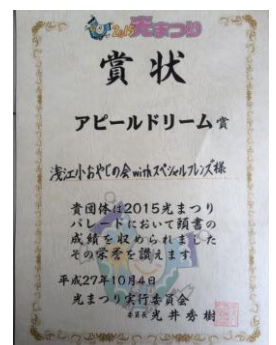 2015光まつり
賞状
アピールドリーム賞
浅江小おやじの会withスペシャルフレンズ様
貴団体は2015光まつり
パレードにおいて頭書の
成績を収められました
その栄誉を讃えます
平成27年10月4日
光まつり実行委員会
委員長 光井秀樹